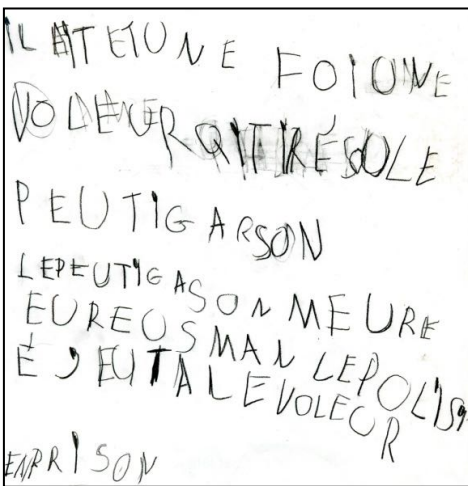 IL ETTETUNE FOIUNE
VOLEUER QITIRÉSOLE
PEUTIGARSON
LEPEUTIGASON MEURE
EUREUSMAN LEPOLIS
É JEUTALEVOLEUR
ENPRISON